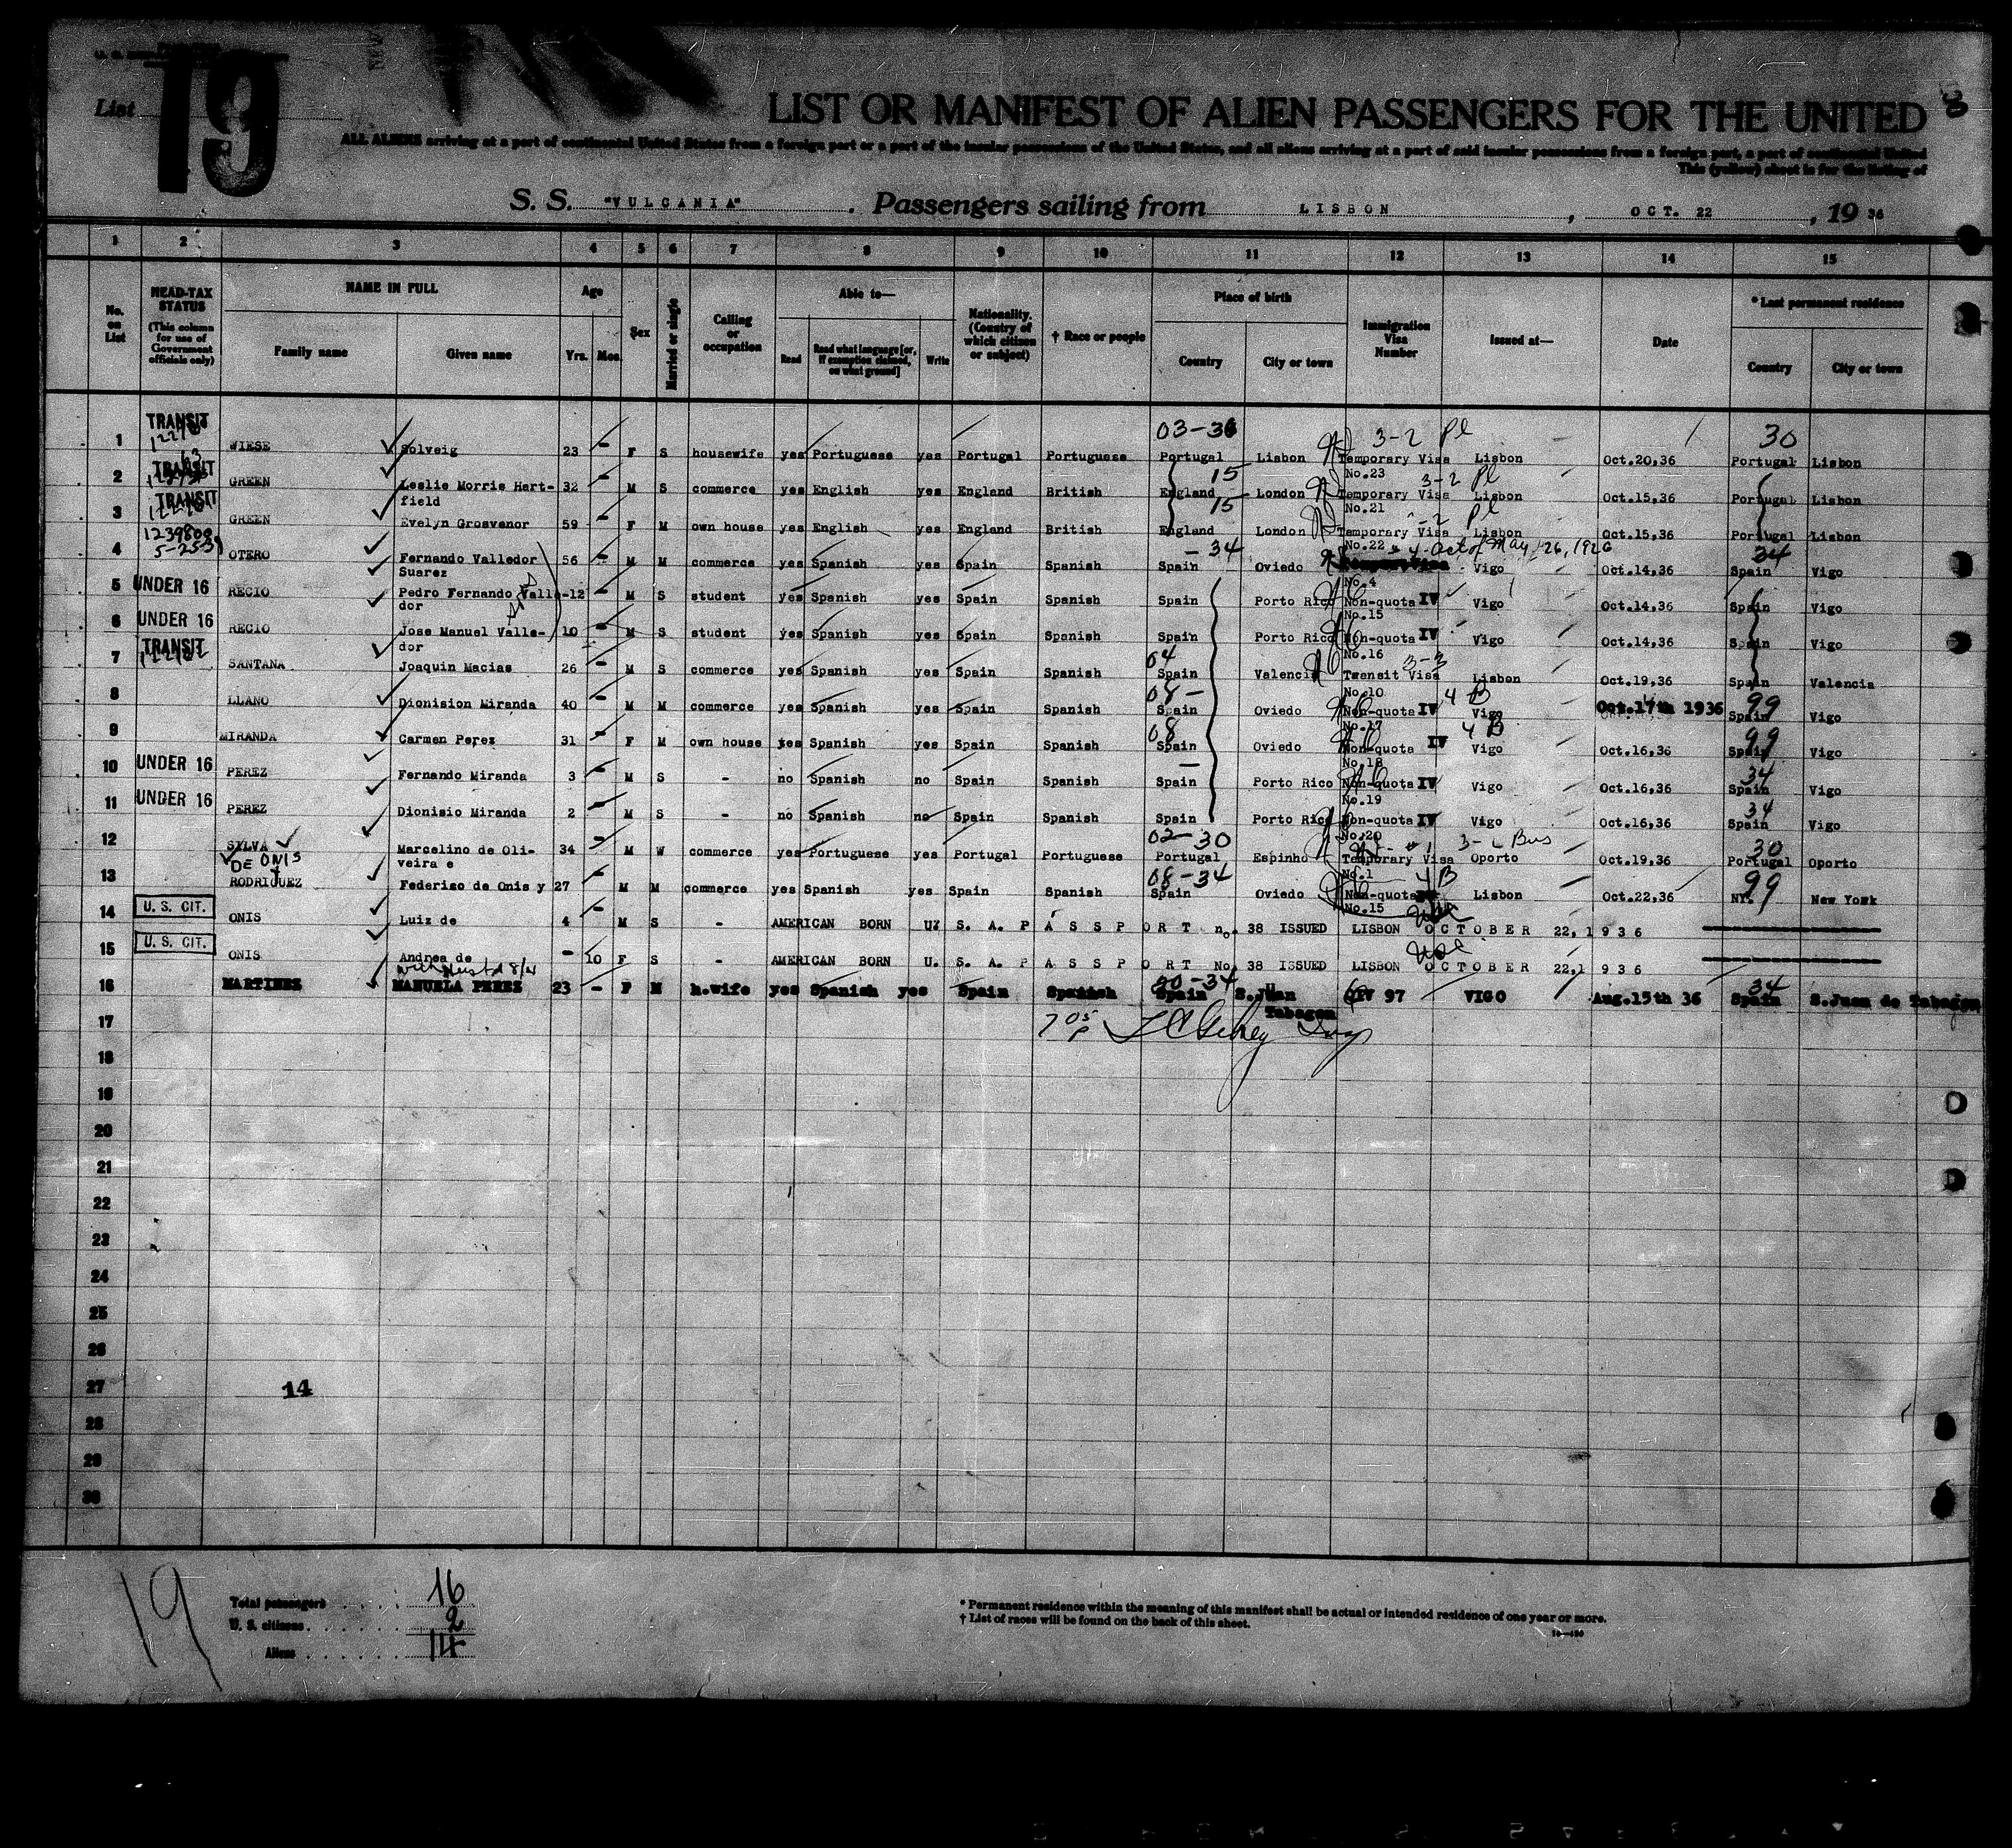 List 19
LIST OR MANIFEST OF ALIEN PASSENGERS FOR THE UNITED
ALL ALIENS arriving at a port of continental United States from a foreign port or a port of the insular possessions of the United States, and all aliens arriving at a port of said insular possessions from a foreign port, a port of continental United
This (yellow) sheet is for the listing of
S. S. "VULCANIA" . Passengers sailing from LISBON , OCT. 22 , 19 36
1 2 3 4 5 6 7 8 9 10 11 12 13 14 15
No. on List
HEAD-TAX STATUS (This column for use of Government officials only)
NAME IN FULL
Family name Given name
Age Yrs. Mos.
Sex
Married or single
Calling or occupation
Able to— Read Read what language [or, if exemption claimed, on what ground] Write
Nationality. (Country of which citizen or subject)
† Race or people
Place of birth Country City or town
Immigration Visa Number
Issued at—
Date
* Last permanent residence Country City or town
03-36 3-2 Pl 30
1 TRANSIT WIESE Solveig 23 - F S housewife yes Portuguese yes Portugal Portuguese Portugal Lisbon Temporary Visa No.23 Lisbon Oct.20,36 Portugal Lisbon
15 3-2 Pl
2 TRANSIT GREEN Leslie Morris Hart-field 32 - M S commerce yes English yes England British England London Temporary Visa No.21 Lisbon Oct.15,36 Portugal Lisbon
15 -2 Pl
3 TRANSIT GREEN Evelyn Grosvenor 59 - F M own house yes English yes England British England London Temporary Visa No.22 Lisbon Oct.15,36 Portugal Lisbon
1239800 -34 4- Act of May, 26, 1926 34
4 OTERO Fernando Valledor Suarez 56 - M M commerce yes Spanish yes Spain Spanish Spain Oviedo No.4 Vigo Oct.14,36 Spain Vigo
5 UNDER 16 RECIO Pedro Fernando Valle-dor 12 - M S student yes Spanish yes Spain Spanish Spain Porto Rico Non-quota IV No.15 Vigo Oct.14,36 Spain Vigo
6 UNDER 16 RECIO Jose Manuel Valle-dor 10 - M S student yes Spanish yes Spain Spanish Spain Porto Rico Non-quota IV No.16 Vigo Oct.14,36 Spain Vigo
04 3-3
7 TRANSIT SANTANA Joaquin Macias 26 - M S commerce yes Spanish yes Spain Spanish Spain Valencia Transit Visa No.10 Lisbon Oct.19,36 Spain Valencia
08 - 4 B 99
8 LLANO Dionision Miranda 40 - M M commerce yes Spanish yes Spain Spanish Spain Oviedo Non-quota IV No.17 Vigo Oct.17th 1936 Spain Vigo
08 4 B 99
9 MIRANDA Carmen Perez 31 - F M own house yes Spanish yes Spain Spanish Spain Oviedo Non-quota IV No.18 Vigo Oct.16,36 Spain Vigo
34
10 UNDER 16 PEREZ Fernando Miranda 3 - M S - no Spanish no Spain Spanish Spain Porto Rico Non-quota IV No.19 Vigo Oct.16,36 Spain Vigo
34
11 UNDER 16 PEREZ Dionisio Miranda 2 - M S - no Spanish no Spain Spanish Spain Porto Rico Non-quota IV No.20 Vigo Oct.16,36 Spain Vigo
02-30 Bus 30
12 SYLVA Marcelino de Oli-veira e 34 - M W commerce yes Portuguese yes Portugal Portuguese Portugal Espinho Temporary Visa No.1 Oporto Oct.19,36 Portugal Oporto
DE ONIS Y 08-34 4B 99
13 RODRIGUEZ Federiso de Onis y 27 - M M commerce yes Spanish yes Spain Spanish Spain Oviedo Non-quota No.15 Lisbon Oct.22,36 NY. New York
14 U. S. CIT. ONIS Luiz de 4 - M S - AMERICAN BORN U. S. A. PASSPORT no. 38 ISSUED LISBON OCTOBER 22,1936
15 U. S. CIT. ONIS Andrea de - 10 F S - AMERICAN BORN U. S. A. PASSPORT No. 38 ISSUED LISBON OCTOBER 22,1936
30-34 34
16 MARTINEZ MANUELA PEREZ 23 - F M h.wife yes Spanish yes Spain Spanish Spain S.Juan Tabagon QIV 97 VIGO Aug.15th 36 Spain S.Juan de Tabagon
17
18
19
20
21
22
23
24
25
26
27 14
28
29
30
19
Total passengers 16
U. S. citizens 2
Aliens 14
* Permanent residence within the meaning of this manifest shall be actual or intended residence of one year or more.
† List of races will be found on the back of this sheet.